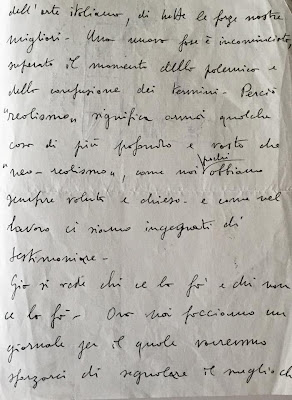 dell'arte italiana, di tutte le forze nostre
migliori - Una nuova fase è incominciata,
superato il momento della polemica e
della confusione dei termini - Perciò
"realismo" significa ormai qualche
cosa di più profondo e vasto che
"neo-realismo", come noi pochi abbiamo
sempre voluto e chiesto - e come nel
lavoro ci siamo ingegnati di
testimoniare -
Già si vede chi ce la fà e chi non
ce la fà - Ora noi facciamo un
giornale per il quale vorremmo
sforzarci di segnalare il meglio ch